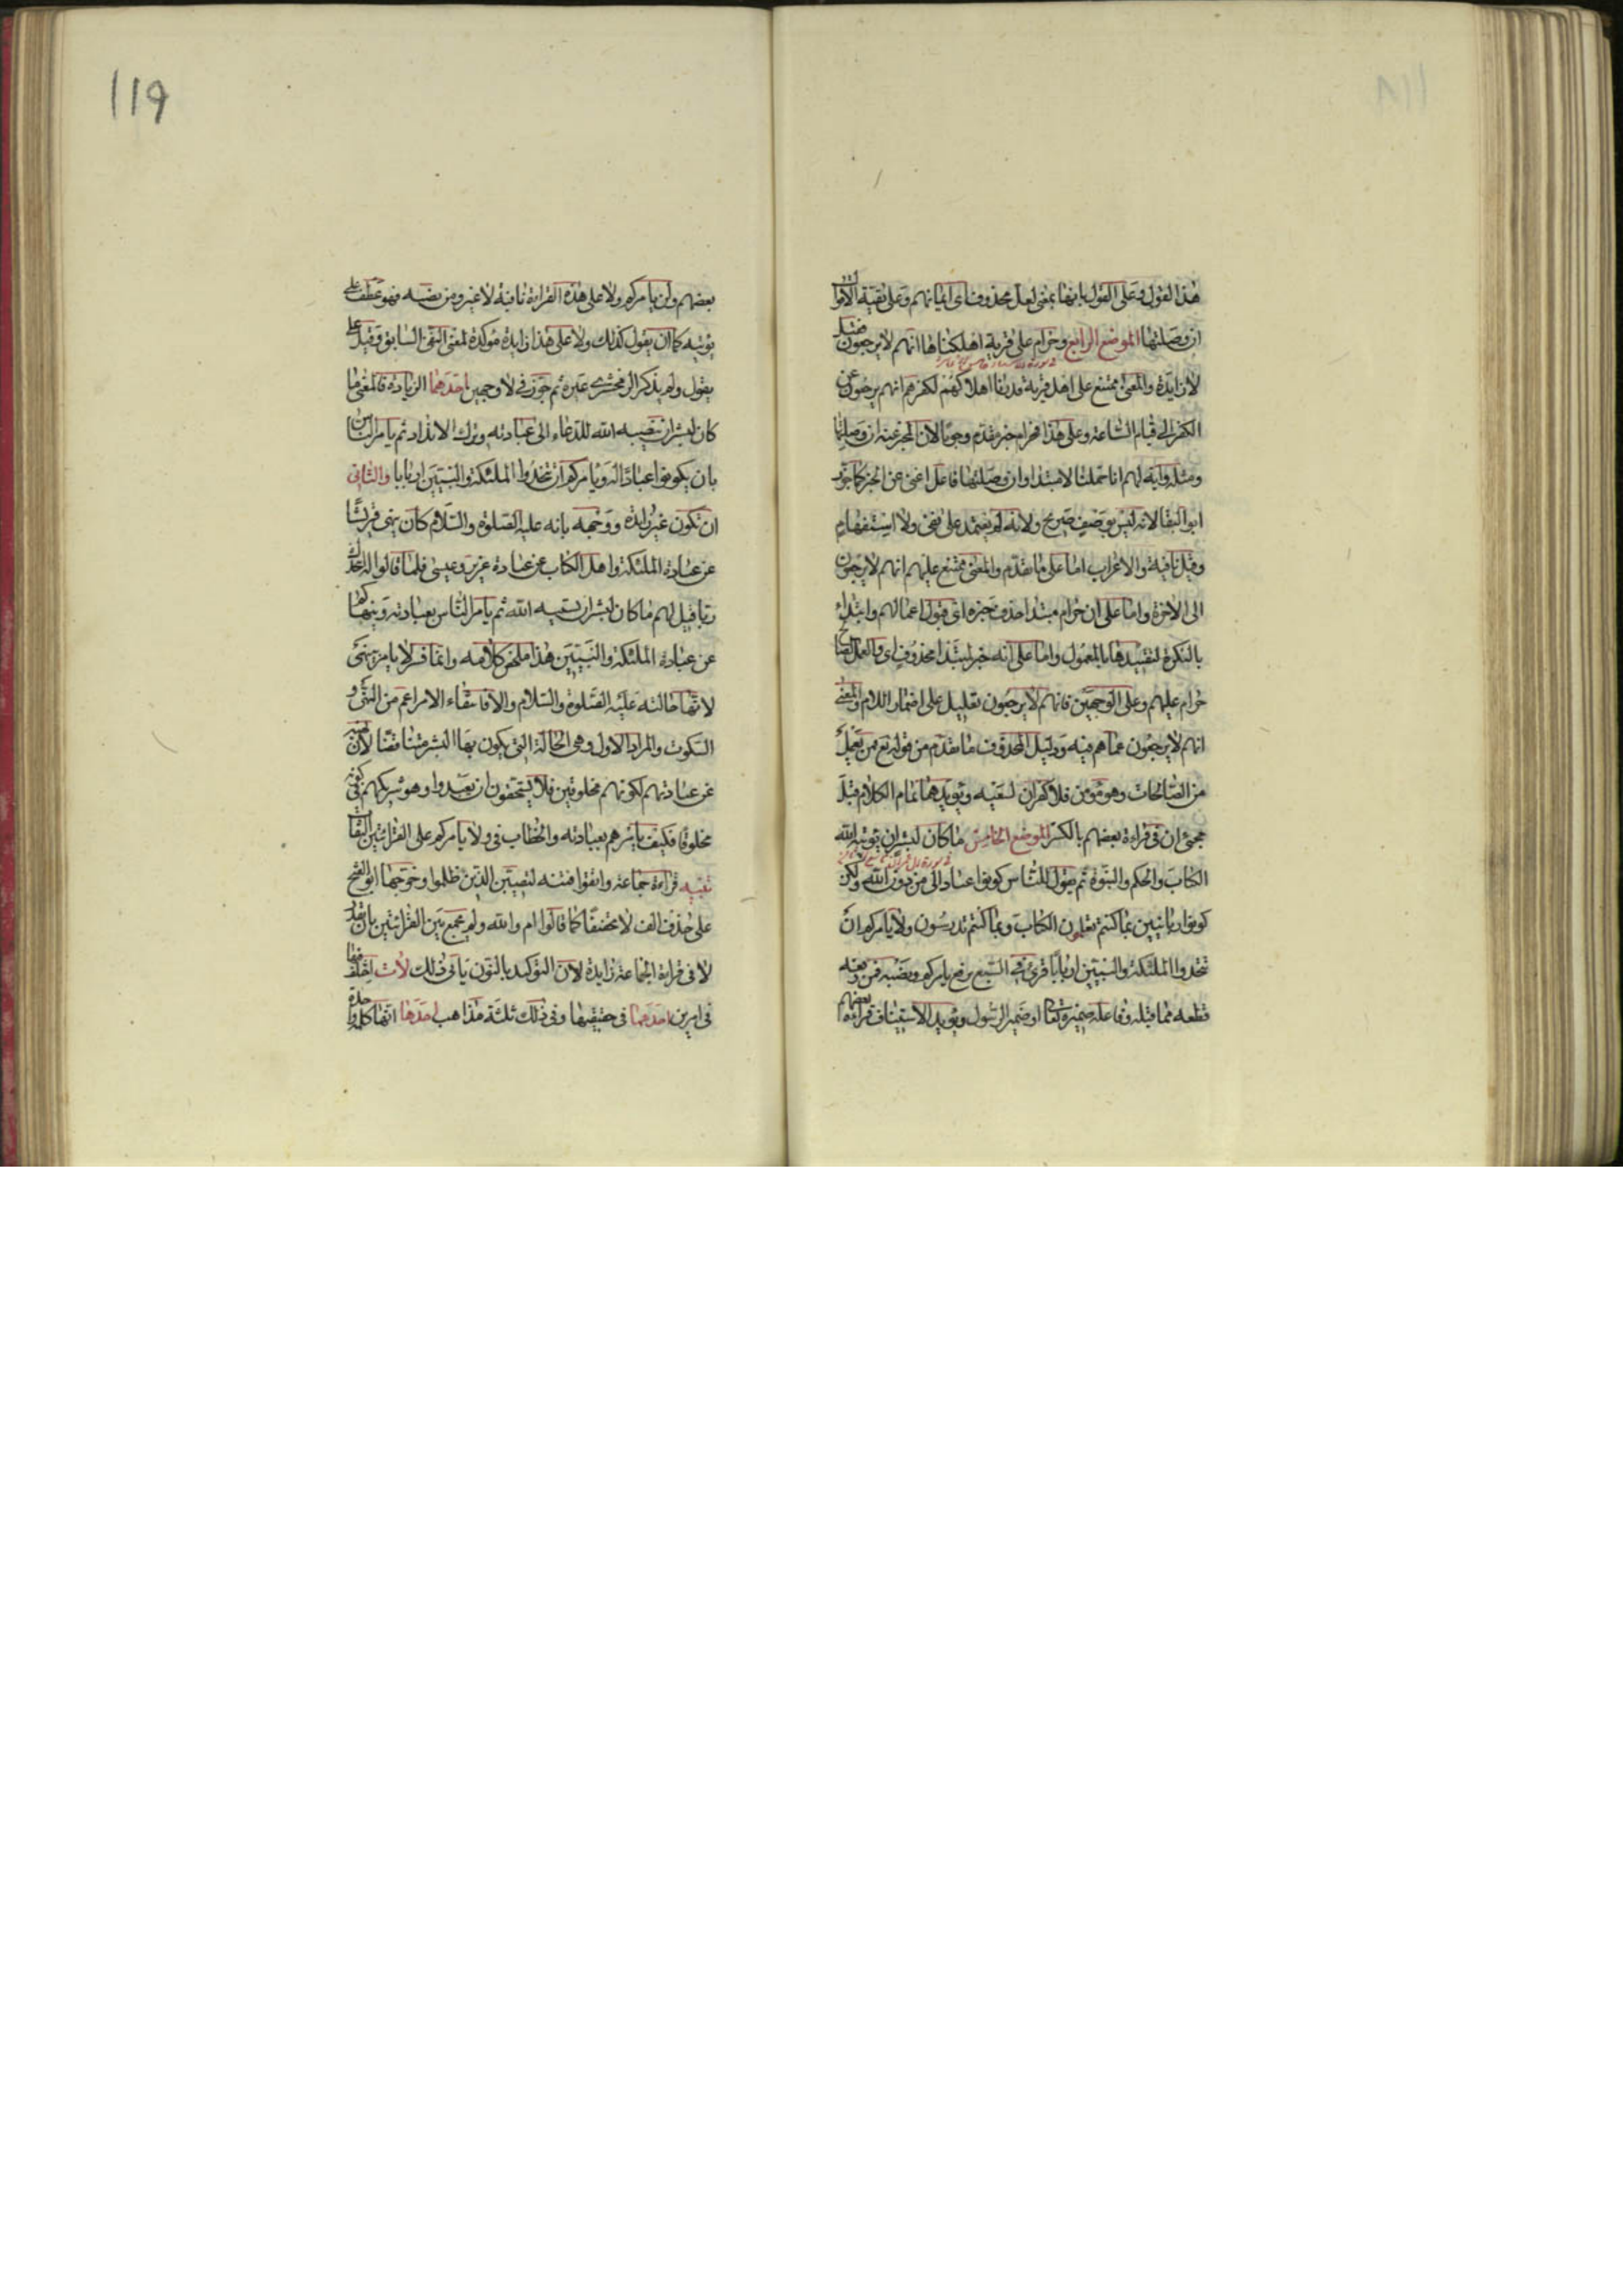 هذا القول وعلى القول بانها بمعنى لعل محذوف اى ايمانهم وعلى بقية الاقوال
ان وصلتها الموضع الرابع وحرام على قرية اهلكناها انهم لا يرجعون فقيل
لا زايدة والمعنى ممتنع على اهل قرية قدرنا اهلاكهم لكفرهم انهم يرجعون عن
الكفر الى قيام الساعة وعلى هذا فحرام خبر مقدم وجوبا لان المخبر عنه ان وصلتها
ومثله وآية لهم انا حملنا لا مبتدا وان وصلتها فاعل اغنى عن الخبر كما جوز
ابو البقا لانه ليس بوصف صريح ولانه لم يعتمد على نفى ولا استفهام
وقيل نافية والاعراب اما على ما تقدم والمعنى ممتنع عليهم انهم لا يرجعون
الى الاخرة واما على ان حرام مبتدا حذف خبره اى قبول اعمالهم وابتداء
بالنكرة لتقييدها بالمعمول واما على انه خبر لمبتدا محذوف اى والعمل الصالح
حرام عليهم وعلى الوجهين فانهم لا يرجعون تعليل على اضمار اللام والمعنى
انهم لا يرجعون عما هم فيه ودليل المحذوف ما تقدم من قوله تع فمن يعمل
من الصالحات وهو مؤمن فلا كفران لسعيه ويؤيدهما تمام الكلام قبل
مجئ ان فى قراءة بعضهم بالكسر الموضع الخامس ما كان لبشر ان يؤتيه الله
الكتاب والحكم والنبوة ثم يقول للناس كونوا عبادا لى من دون الله ولكن
كونوا ربانيين بما كنتم تعلمون الكتاب وبما كنتم تدرسون ولا يامركم ان
تتخذوا الملئكة والنبيين اربابا قرئ فى السبع برفع يامركم ونصبه فمن رفعه
قطعه مما قبله وفاعله ضميره تعالى او ضمير الرسول ويؤيد الاستيناف قراءة بعضهم
119
بعضهم ولن يامركم ولا على هذه القراءة نافية لا غير ومن نصبه فهو عطف على
يؤتيه كما ان يقول كذلك ولا على هذا زايدة مؤكدة لمعنى النفى السابق وقيل على
يقول ولم يذكر الزمخشرى غيره ثم جوز فى لا وجهين احدهما الزيادة فالمعنى ما
كان لبشر ان ينصبه الله للدعاء الى عبادته وترك الانداد ثم يامر الناس
بان يكونوا عبادا له ويامركم ان تتخذوا الملئكة والنبيين اربابا والثانى
ان تكون غير زايدة ووجهه بانه عليه الصلوة والسلام كان ينهى قريشا
عن عبادة الملئكة واهل الكتاب عن عبادة عزير وعيسى فلما قالوا له انتخذك
ربا قيل لهم ما كان لبشر ان يستنبيه الله ثم يامر الناس بعبادته وينهاكم
عن عبادة الملئكة والنبيين هذا ملخص كلامه وانما فسر لا يامر بينهى
لانها حالته عليه الصلوة والسلام والا فانتفاء الامر اعم من النهى و
السكوت والمراد الاول وهى الحالة التى يكون بها البشر متناقضا لان نهيه
عن عبادتهم لكونهم مخلوقين فلا يستحقون ان يعبدوا وهو شريكهم فى كونه
مخلوقا فكيف يامرهم بعبادته والخطاب فى ولا يامركم على القراءتين التفات
تنبيه قراءة جماعة واتقوا فتنة لتصيبن الذين ظلموا وخرجها ابو الفتح
على حذف الف لا تخفيفا كما قالوا ام والله ولم يجمع بين القراءتين بان تقدر
لا فى قراءة الجماعة زايدة لان التوكيد بالنون يابى ذلك لات اختلف فيها
فى امرين احدهما فى حقيقتها وفى ذلك ثلثة مذاهب احدها انها كلمة واحدة